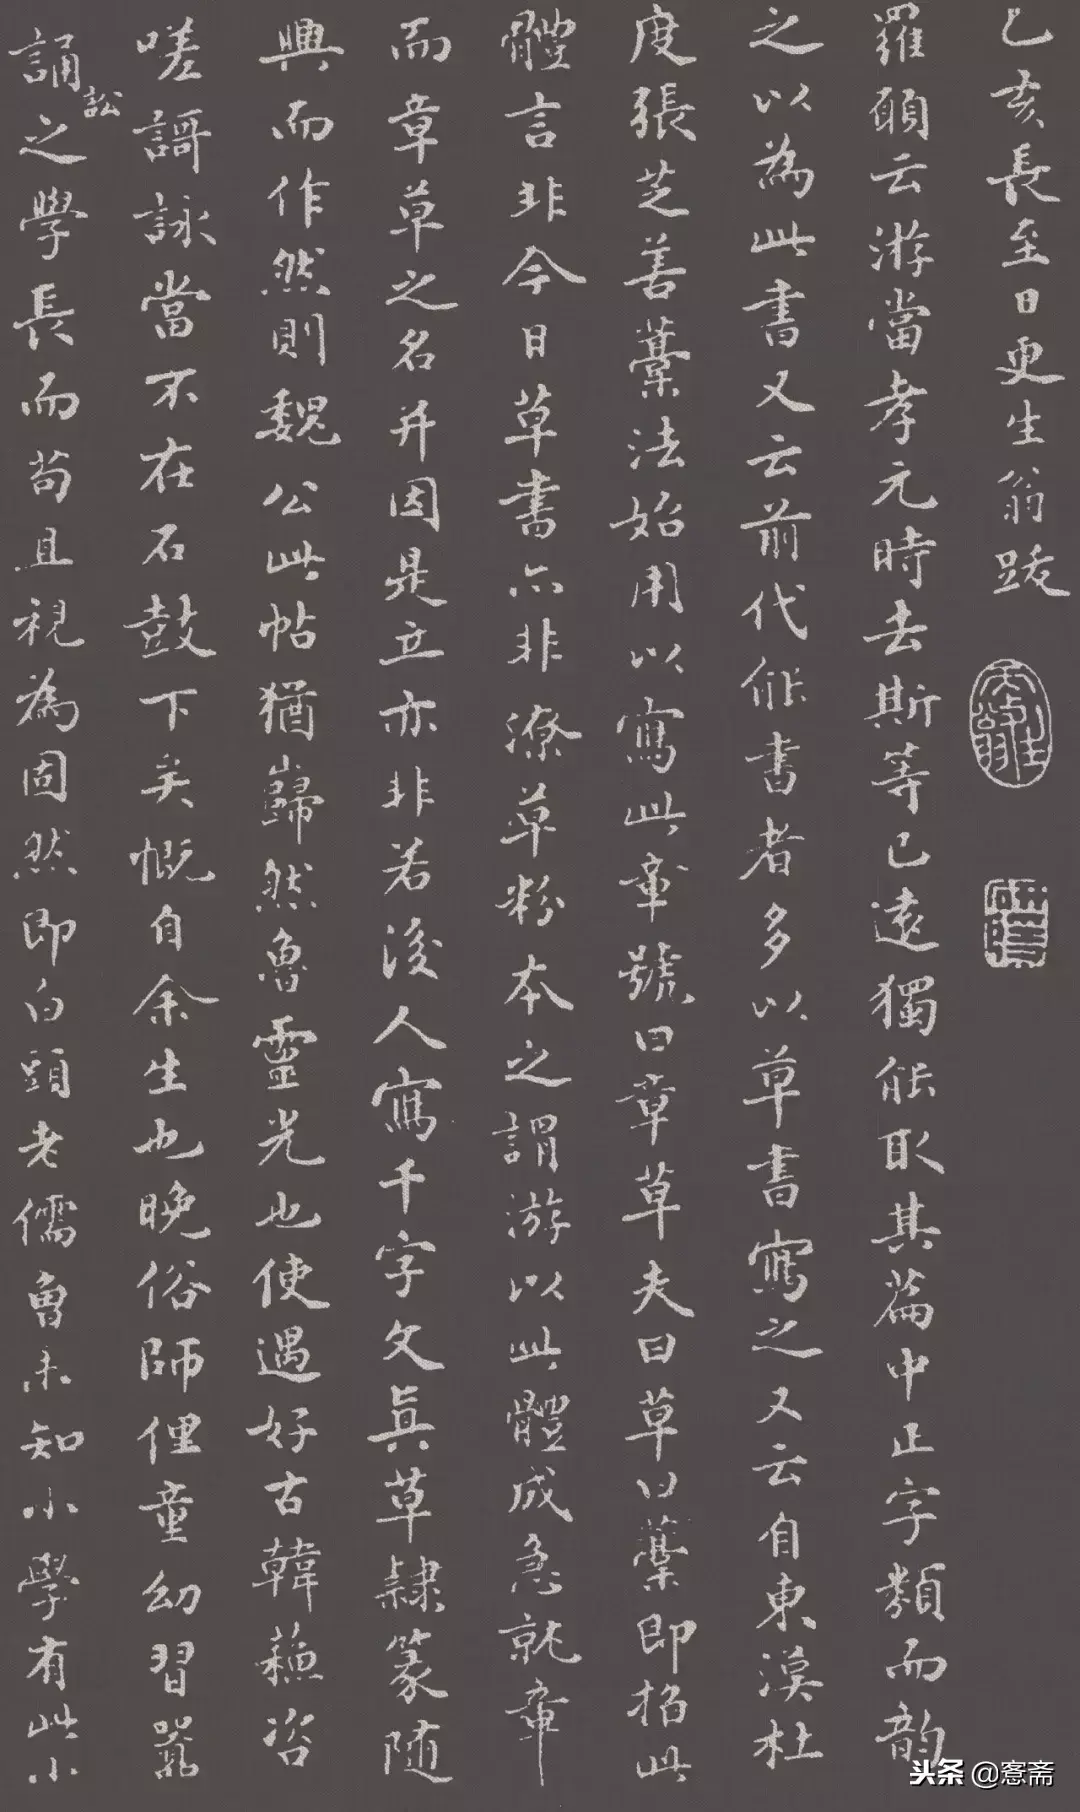 乙亥長至日更生翁跋
羅願云游當孝元時去斯等已遠獨能取其篇中正字類而韵
之以為此書又云前代能書者多以草書寫之又云自東漢杜
度張芝善藁法始用以寫此章號曰章草夫曰草曰藁即指此
體言非今日草書亦非潦草粉本之謂游以此體成急就章
而章草之名并因是立亦非若後人寫千字文真草隸篆隨
興而作然則魏公此帖猶巋然魯靈光也使遇好古韓蘇咨
嗟謌詠當不在石鼓下矣慨自余生也晚俗師俚童幼習囂
訟
誦之學長而苟且視為固然即白頭老儒魯未知小學有此小
头条 @愙斋